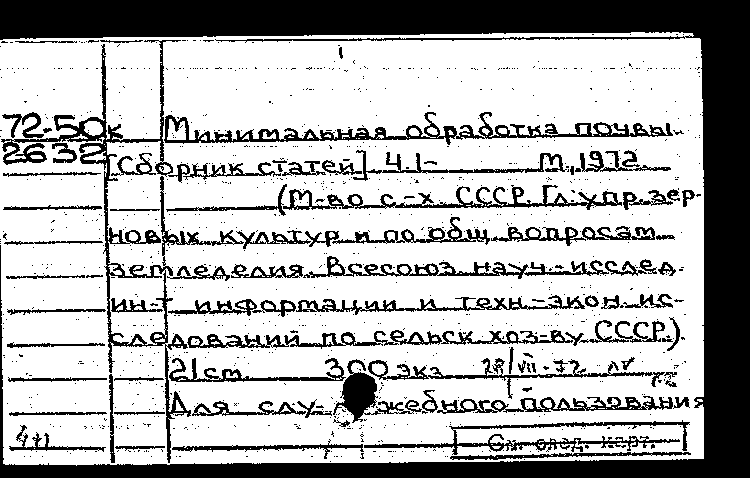 72-50к Минимальная обработка почвы.
2632 [Сборник статей] Ч.1- М.,1972.
(М-во с.-х. СССР. Гл. упр. зер-
новых культур и по общ. вопросам
земледелия. Всесоюз. науч.-исслед.
ин-т информации и техн.-экон. ис-
следований по сельск. хоз-ву СССР.)
21 см. 300 экз. 28/VII-72
Для слу- жебного пользования
См. след. карт.